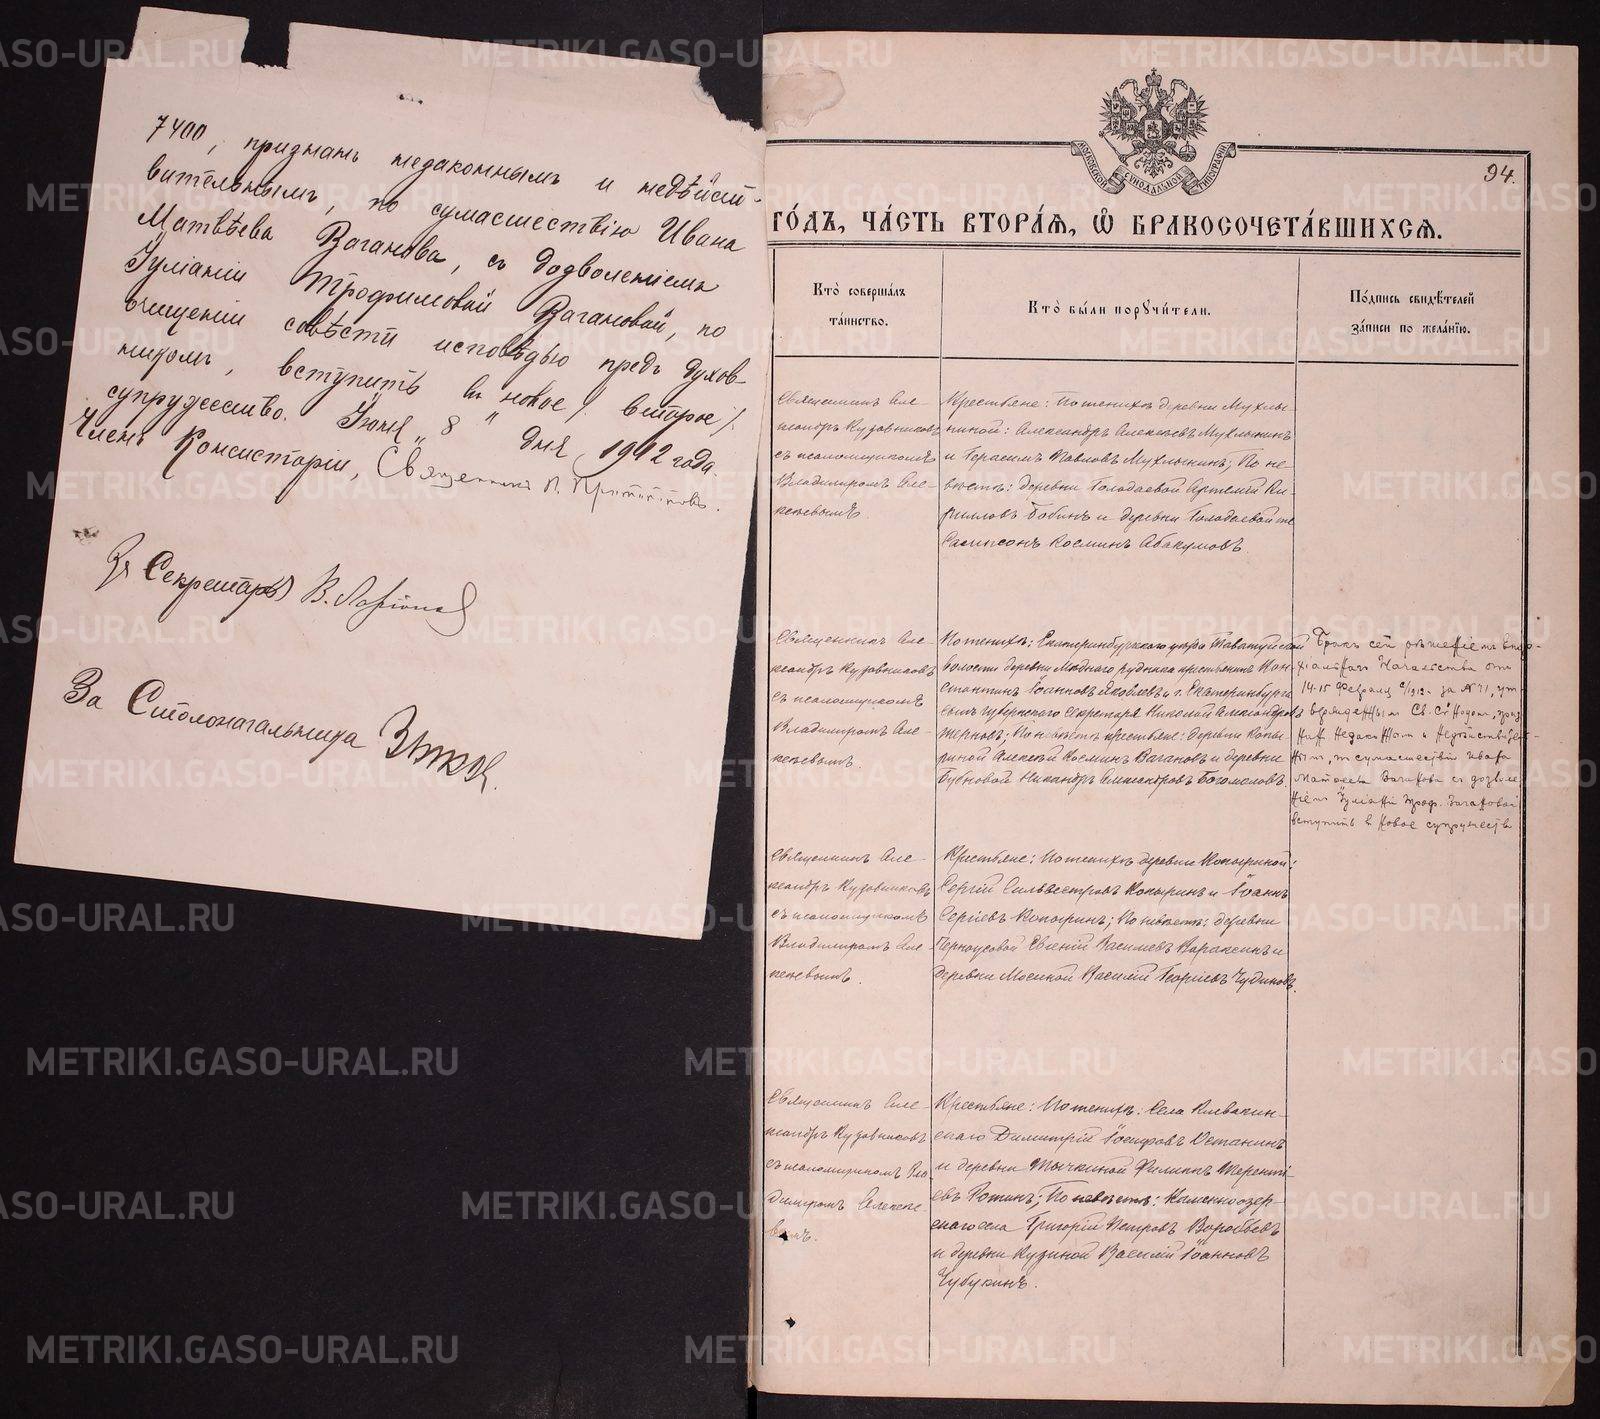 7400, признать незаконнымъ и недѣйст-
вительнымъ, по сумасшествію Ивана
Матвѣева Ваганова, съ дозволеніемъ
Іуліаніи Трофимовой Вагановой, по
очищеніи совѣсти исповѣдью предъ духов-
никомъ, вступить въ новое / второе /
супружество. Іюня „8" дня 1912 года.
Членъ Консисторіи, Священникъ
За Секретаря В. Ларіоновъ
За Столоначальника Зыковъ.
94.
МОСКОВСКОЙ СѴНОДАЛЬНОЙ ТИПОГРАФІИ
ГО́ДЪ, ЧА́СТЬ ВТОРА́Я, Ѽ БРАКОСОЧЕТА́ВШИХСЯ.
Кто̀ соверша́лъ
та́инство.
Кто̀ бы́ли порꙋчи́тели.
По́дпись свидѣ́телей
за́писи по жела́нїю.
Священникъ Але-
ксандръ Кудовниковъ
съ псаломщикомъ
Владиміромъ Але-
ксѣевымъ
Крестьяне: По женихѣ деревни Мухлы-
ниной: Александръ Алексѣевъ Мухлынинъ
и Герасимъ Павловъ Мухлынинъ; По не-
вѣстѣ: деревни Голодаевой Артемій Ки-
рилловъ Бобинъ и деревни Голодаевой же
Сампсонъ Космин Абакумовъ.
Священникъ Але-
ксандръ Кудовниковъ
съ псаломщикомъ
Владиміромъ Але-
ксѣевымъ.
По женихѣ: Екатеринбургскаго уѣзда Таватуйской
волости деревни Мѣднаго рудника крестьянинъ Кон-
стантинъ Іоанновъ Яковлевъ и г. Екатеринбурга
сынъ Губернскаго Секретаря Николай Александровъ
Жерновъ; По невѣстѣ крестьяне: деревни Копы-
риной Алексѣй Космин Вагановъ и деревни
Бубновой Никандръ Александровъ Богомоловъ.
Бракъ сей рѣшеніемъ Епар-
хіальнаго Начальства отъ
14-15 Февраля с/1912 г. за № 71, ут-
вержденнымъ Св. Сѵнодомъ, приз-
нанъ незаконнымъ и недѣйствитель-
нымъ, по сумасшествію Ивана
Матвѣева Ваганова съ дозволе-
ніемъ Іуліаніи Троф. Вагановой
вступить въ новое супружество
Священникъ Але-
ксандръ Кудовниковъ
съ псаломщикомъ
Владиміромъ Але-
ксѣевымъ.
Крестьяне: По женихѣ деревни Копыриной:
Сергій Сильвестровъ Копыринъ и Іоаннъ
Сергіевъ Копыринъ; По невѣстѣ: деревни
Черноусовой Евгеній Васильевъ Вараксинъ и
деревни Мосиной Василій Георгіевъ Чудиновъ.
Священникъ Але-
ксандръ Кудовниковъ
съ псаломщикомъ Вла-
диміромъ Алексѣе-
вымъ.
Крестьяне: По женихѣ: Села Клевакин-
скаго Димитрій Іосифовъ Останинъ
и деревни Тычкиной Филиппъ Терентi-
евъ Ротинъ; По невѣстѣ: Каменноозер-
скаго села Григорій Петровъ Воробьевъ
и деревни Кузиной Василій Іоанновъ
Чубукинъ.